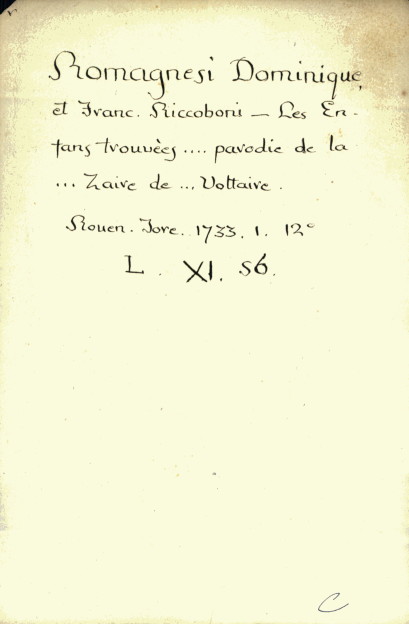 Romagnesi Dominique,
et Franc. Riccoboni — Les En-
fans trouvées .... parodie de la
... Zaire de ... Voltaire.
Rouen. Jore. 1733. 1. 12°
L. XI. 56.
C